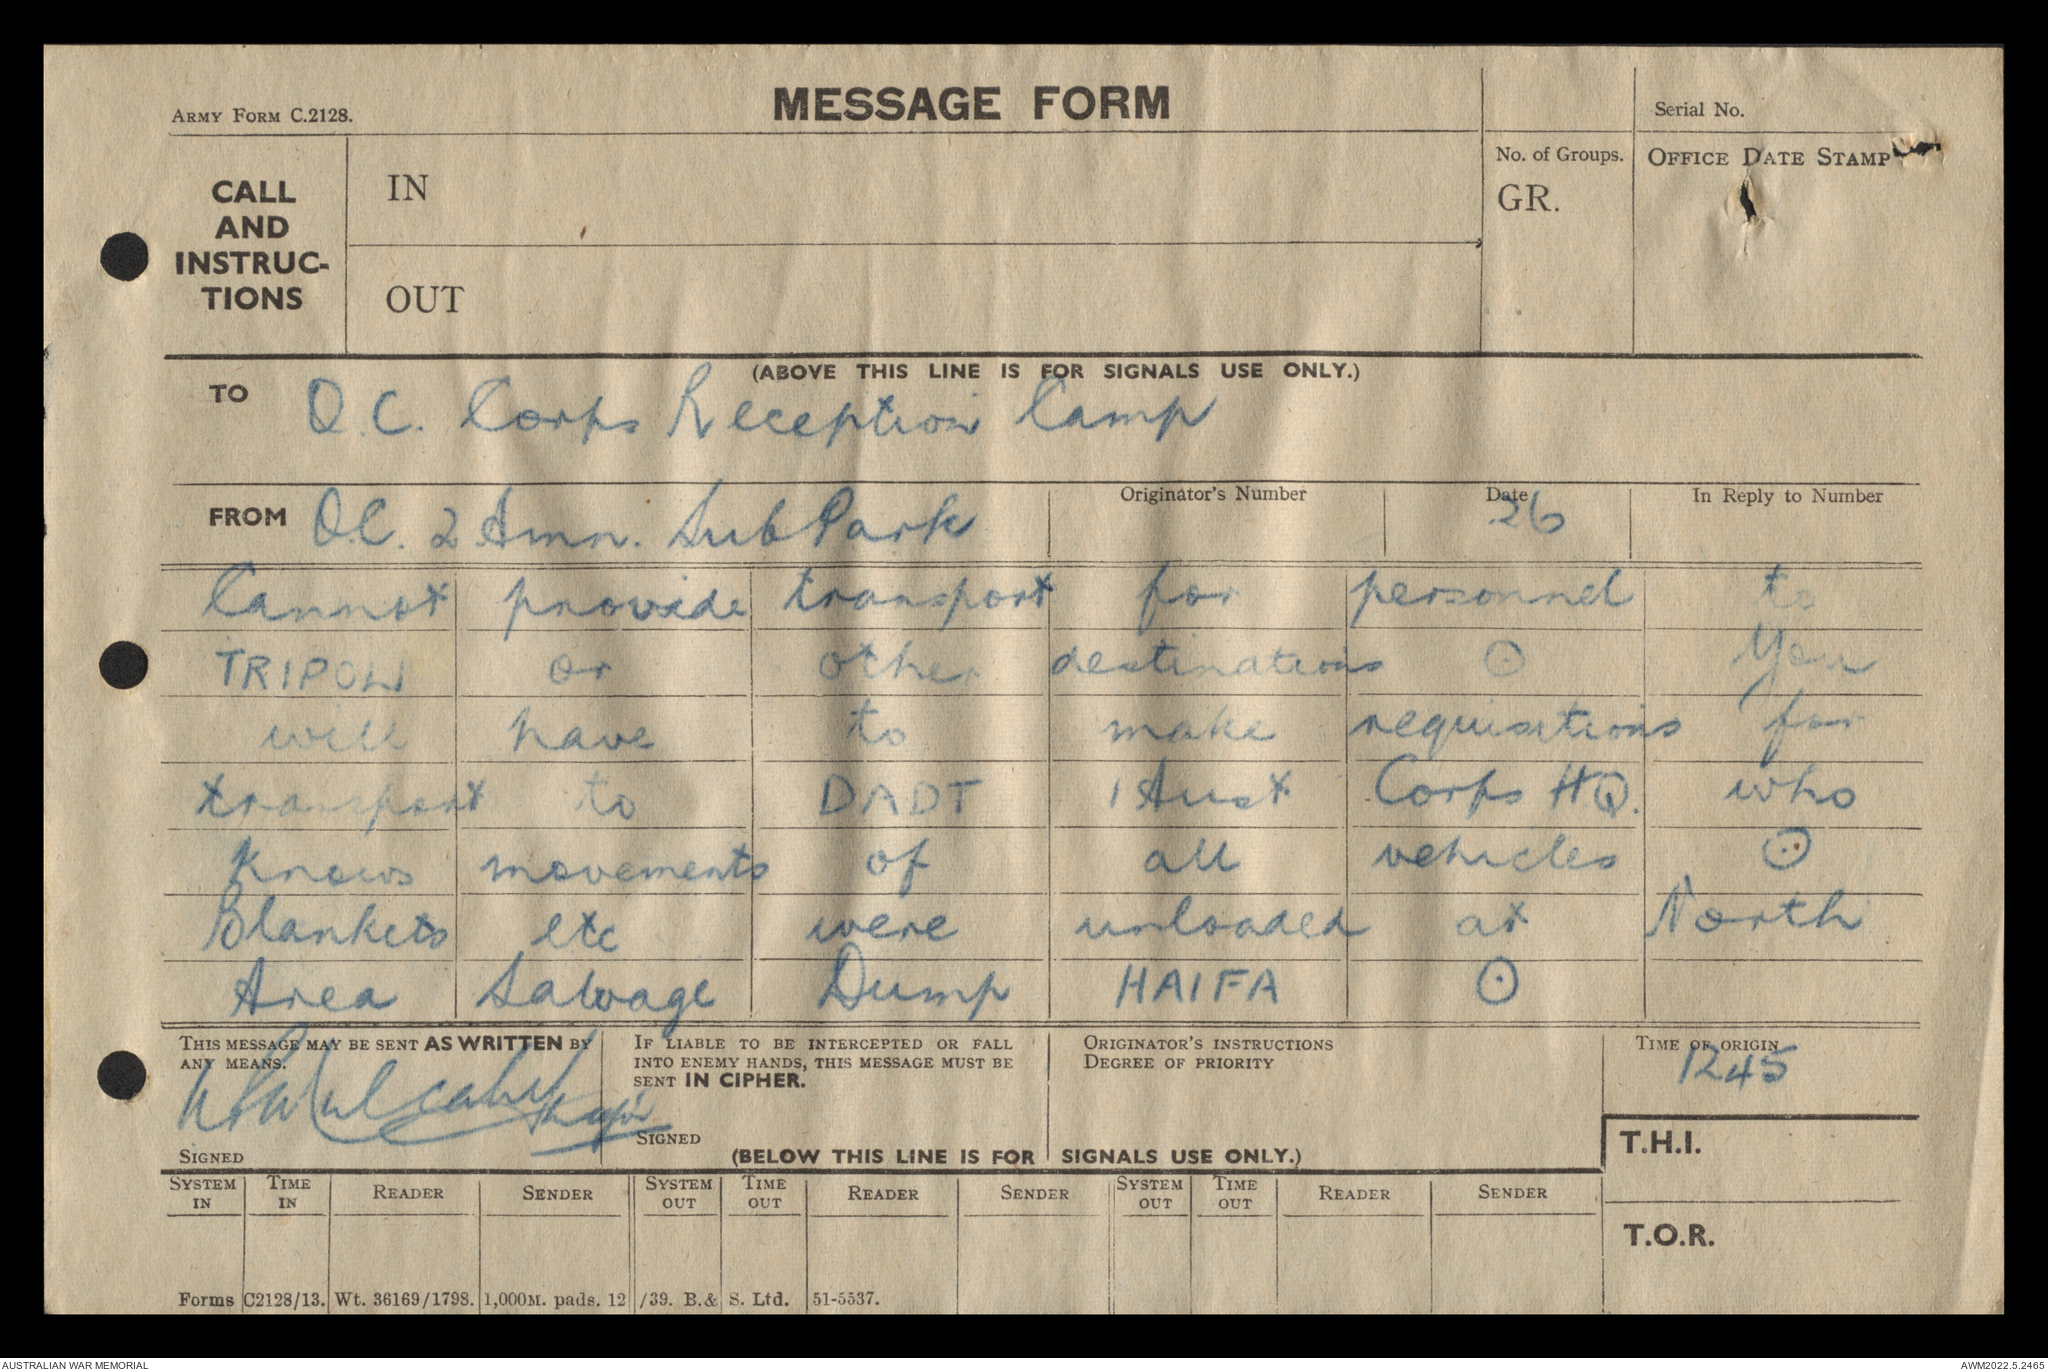 ARMY FORM C.2128.
MESSAGE FORM
Serial No.
CALL AND INSTRUC-TIONS
IN
OUT
No. of Groups.
GR.
OFFICE DATE STAMP
(ABOVE THIS LINE IS FOR SIGNALS USE ONLY.)
TO O.C. Corps Reception Camp
FROM O.C. 2 Amn. Sub Park
Originator's Number
Date 26
In Reply to Number
Cannot provide transport for personnel to
TRIPOLI or other destinations ⊙ You
will have to make requisitions for
transport to DADT 1 Aust Corps HQ. who
knows movements of all vehicles ⊙
Blankets etc were unloaded at North
Area Salvage Dump HAIFA ⊙
THIS MESSAGE MAY BE SENT AS WRITTEN BY ANY MEANS.
Mulcahy Major
SIGNED
IF LIABLE TO BE INTERCEPTED OR FALL INTO ENEMY HANDS, THIS MESSAGE MUST BE SENT IN CIPHER.
SIGNED
ORIGINATOR'S INSTRUCTIONS
DEGREE OF PRIORITY
TIME OF ORIGIN
1245
T.H.I.
T.O.R.
(BELOW THIS LINE IS FOR SIGNALS USE ONLY.)
SYSTEM IN TIME IN READER SENDER SYSTEM OUT TIME OUT READER SENDER SYSTEM OUT TIME OUT READER SENDER
Forms C2128/13. Wt. 36169/1798. 1,000M. pads. 12 /39. B.& S. Ltd. 51-5537.
AUSTRALIAN WAR MEMORIAL
AWM2022.5.2465